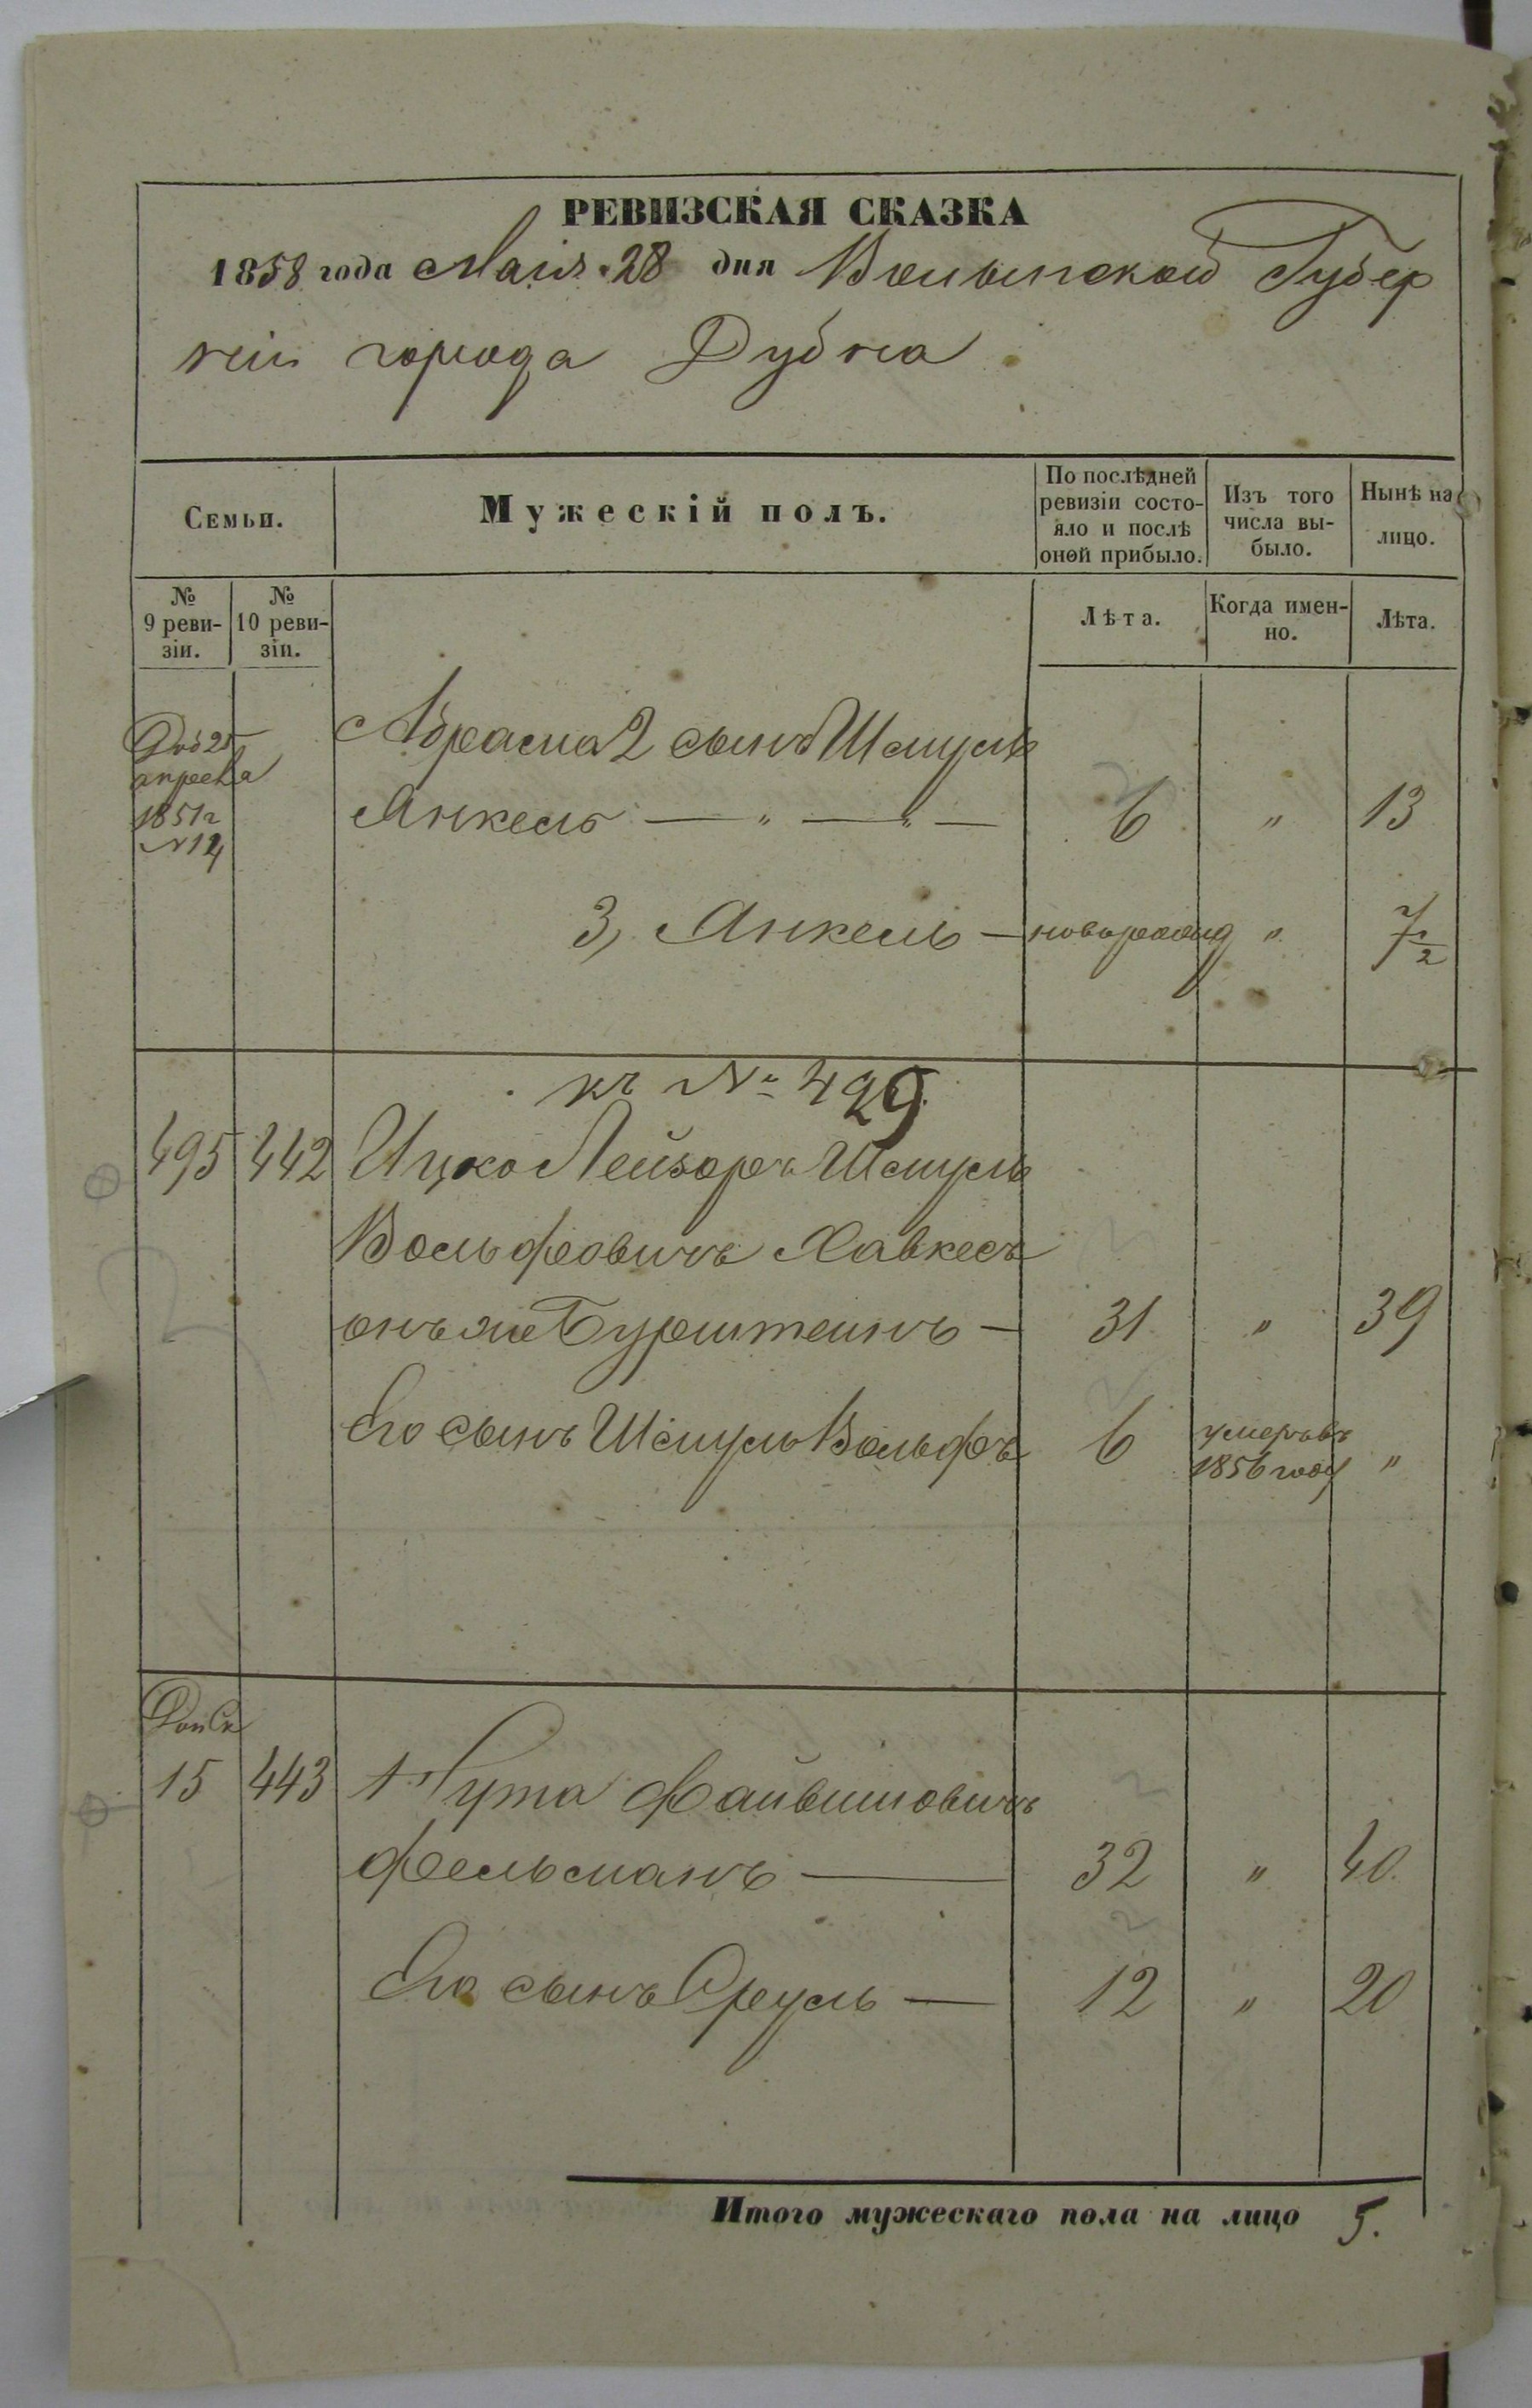 РЕВИЗСКАЯ СКАЗКА
1858 года Маія 28 дня Волынской Губер
ніи города Дубна
Семьи.
Мужескій полъ.
По послѣдней ревизіи состо-
яло и послѣ
оной прибыло.
Изъ того
числа вы-
было.
Нынѣ на
лицо.
№
9 реви-
зіи.
№
10 реви-
зіи.
Лѣта.
Когда имен-
но.
Лѣта.
апреля
1851г
Абрама 2 сынъ Шмуль
Янкель — „ — „ — 6 „ 13
3, Янкель — новорожд „ 7 1/2
къ № 429
495 442 Ицко Лейзоръ Шмуль
Вольфовичъ Хавкесъ
онъ же Бурштеинъ — 31 „ 39
Его сынъ Шмуль Вольфъ 6 умеръ въ
1856 году „
Доп Ск
15 443 1 Нута Файвишовичъ
Фельманъ — 32 „ 40.
Его сынъ Сруль — 12 „ 20
Итого мужескаго пола на лицо 5.